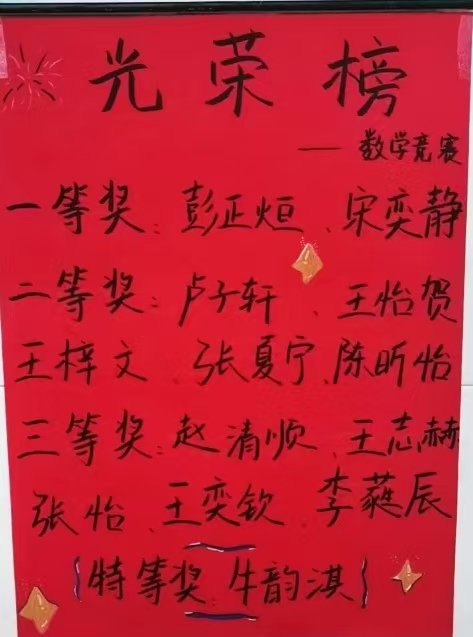 光荣榜
——数学竞赛
一等奖：彭正烜、宋奕静
二等奖：卢子轩、王怡贺
王梓文、张夏宁、陈昕怡
三等奖：赵清顺、王志赫
张怡、王奕钦、李蕤辰
{特等奖：牛韵淇}